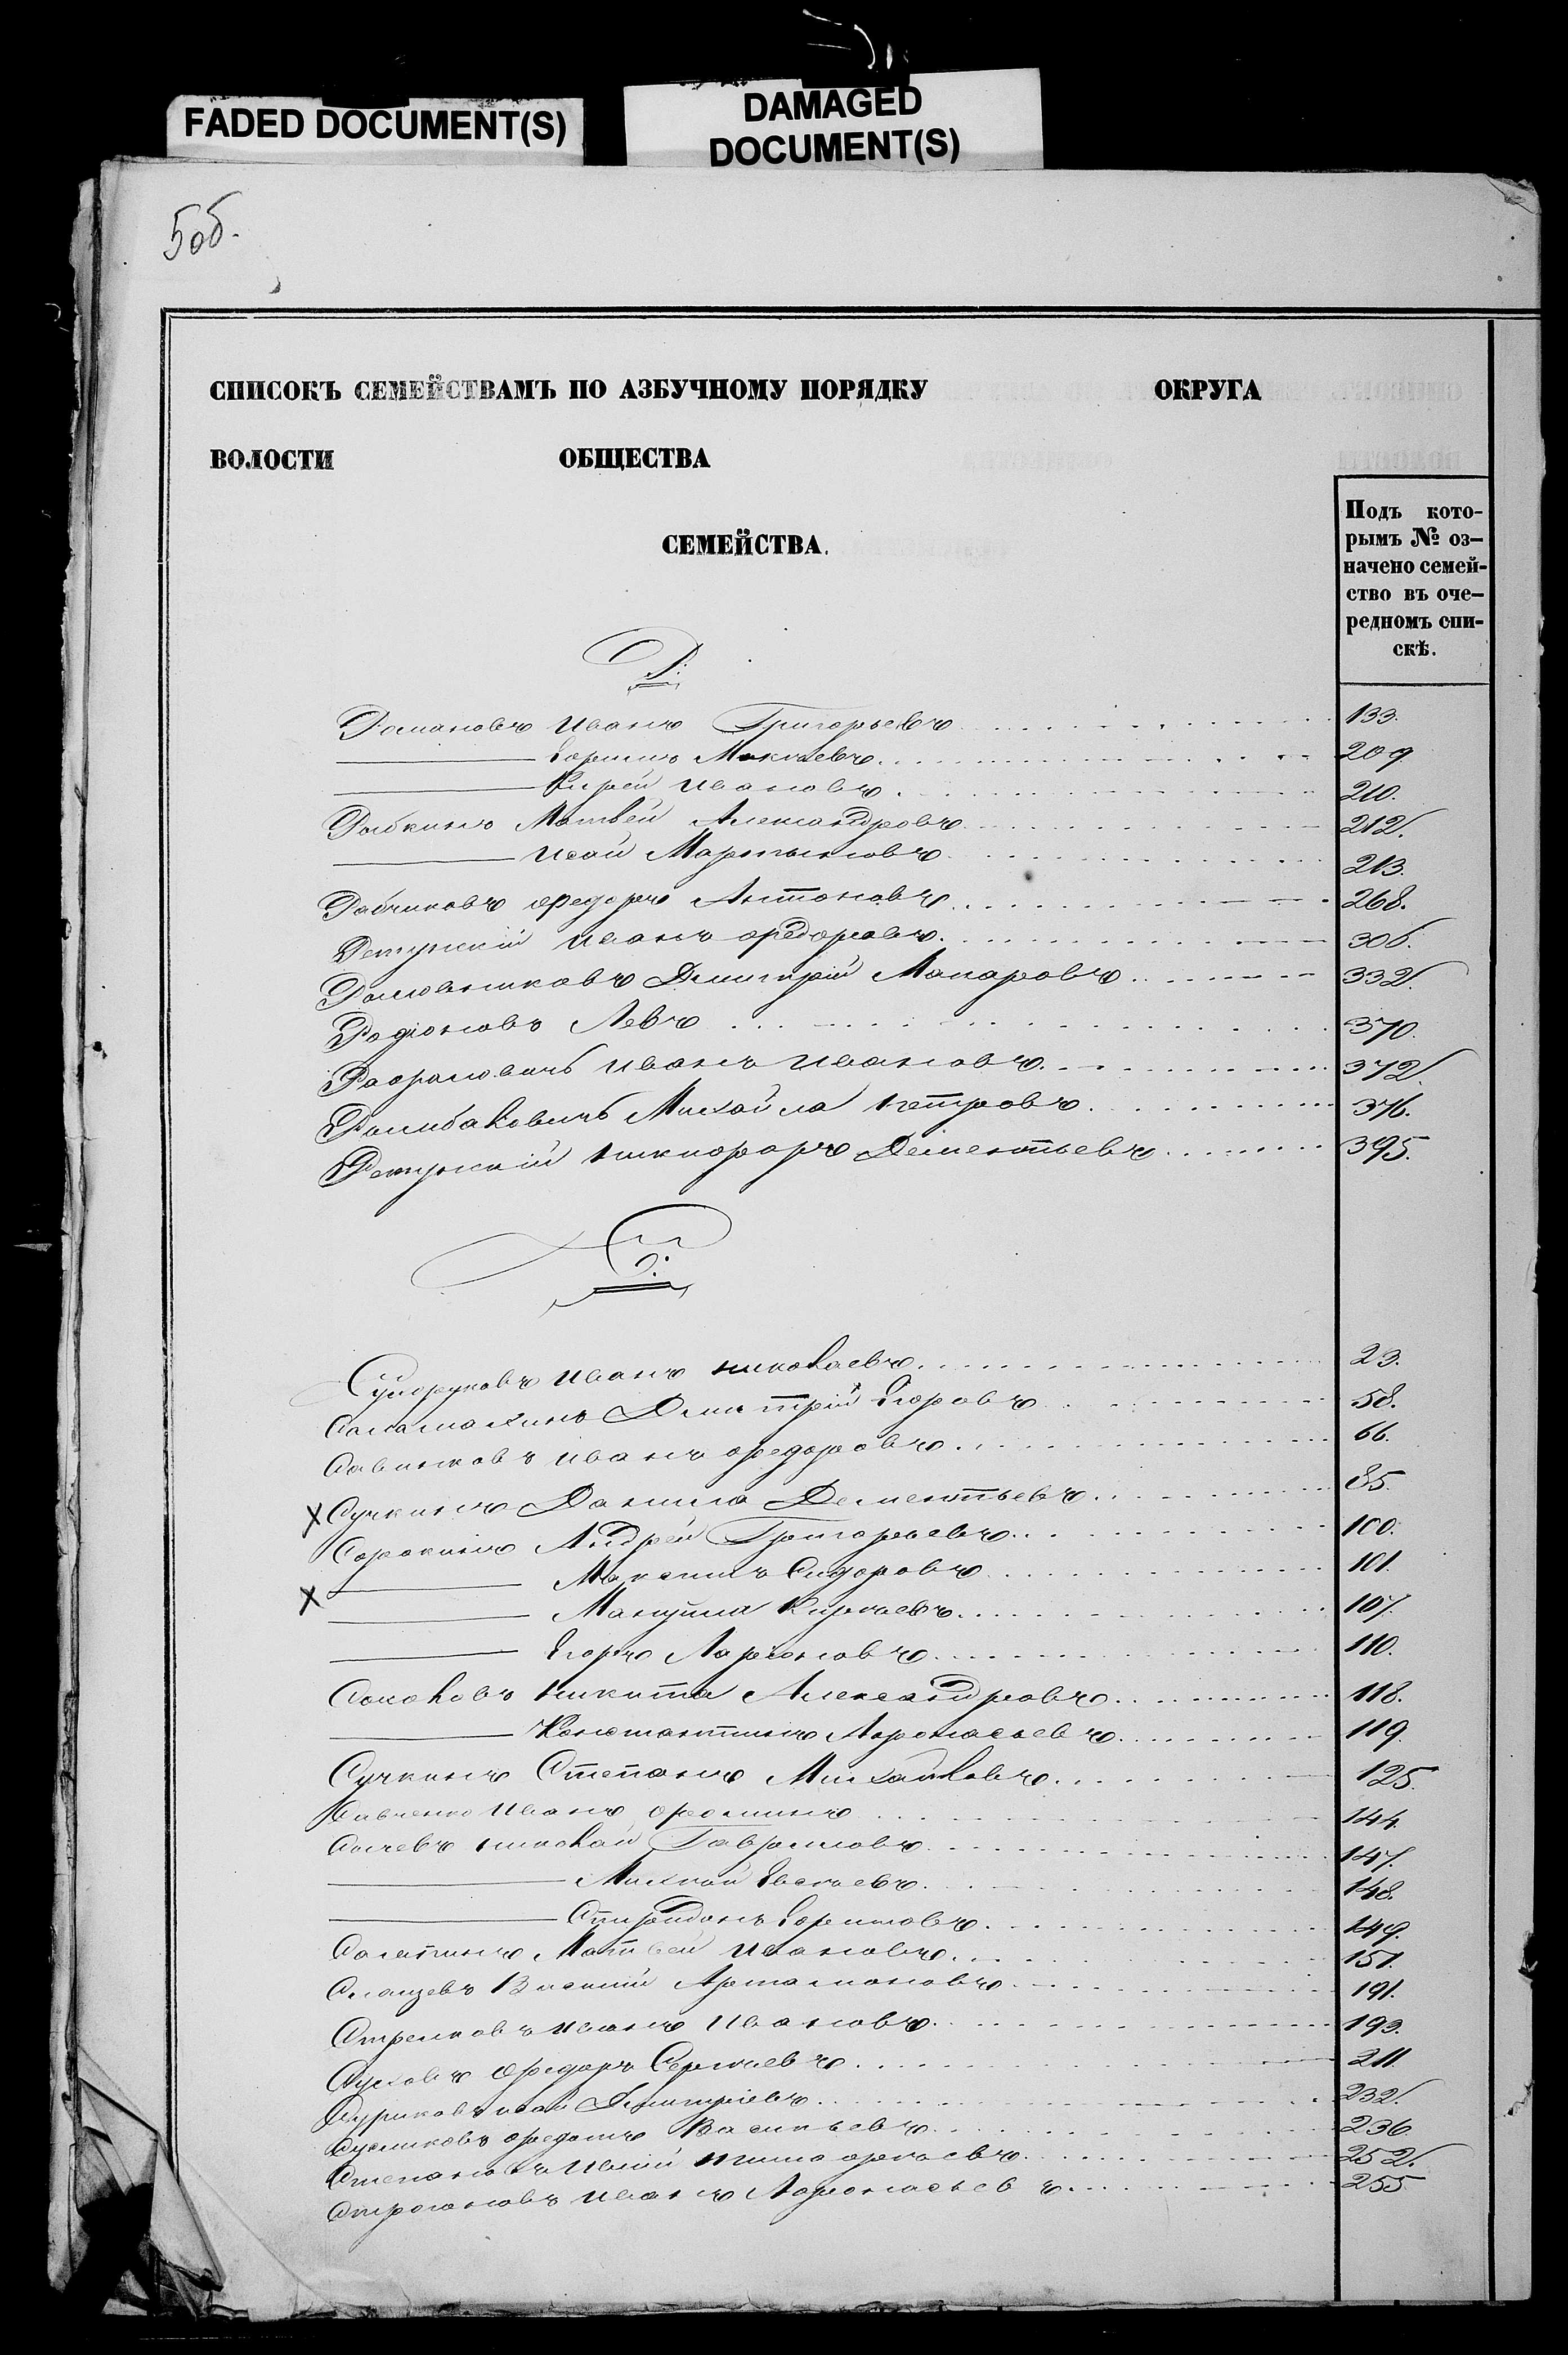 FADED DOCUMENT(S)
DAMAGED
DOCUMENT(S)
5об.
СПИСОКЪ СЕМЕЙСТВАМЪ ПО АЗБУЧНОМУ ПОРЯДКУ ОКРУГА
ВОЛОСТИ ОБЩЕСТВА
СЕМЕЙСТВА.
Подъ кото-
рымъ № оз-
начено семей-
ство въ оче-
редномъ спи-
скѣ.
Р.
Романовъ Иванъ Григорьевъ 133.
Мокѣевъ 209
Кирей Ивановъ 210.
Рыбкинъ Матвей Александровъ 212.
Исай Мартыновъ 213.
Рабчиковъ Федоръ Антоновъ 268.
Репускій Иванъ Федоровъ 306.
Дмитрій Макаровъ 332.
Родіоновъ Левъ 370.
Иванъ Ивановъ 372.
Михайла Петровъ 376.
Никифоръ Дементьевъ 395.
С.
Иванъ Николаевъ 23.
Саламахинъ Дмитрій Егоровъ 58.
Савинковъ Иванъ Федоровъ 66.
Х Сучкинъ Данила Дементьевъ 85.
Сорокинъ Андрей Григорьевъ 100.
Максимъ Сидоровъ 101.
Х Мануила Киреевъ 107.
Егоръ Ларіоновъ 110.
Соколовъ Никита Александровъ 118.
Константинъ Афонасьевъ 119.
Сучкинъ Степанъ Михайловъ 125.
Савченко Иванъ Фоминъ 144.
Сычевъ Николай Гавриловъ 147.
Михай Евсѣевъ 148.
Спиридонъ Ефимовъ 149.
Салатинъ Матвей Ивановъ 151.
Василій Артамоновъ 191.
Стрелковъ Иванъ Ивановъ 193.
Сусловъ Федоръ Сергѣевъ 211
Суриковъ Исай Дмитріевъ 232.
Сусликовъ Васильевъ 236
Степановъ Тимофеевъ 252.
Строгановъ Иванъ Афонасьевъ 255